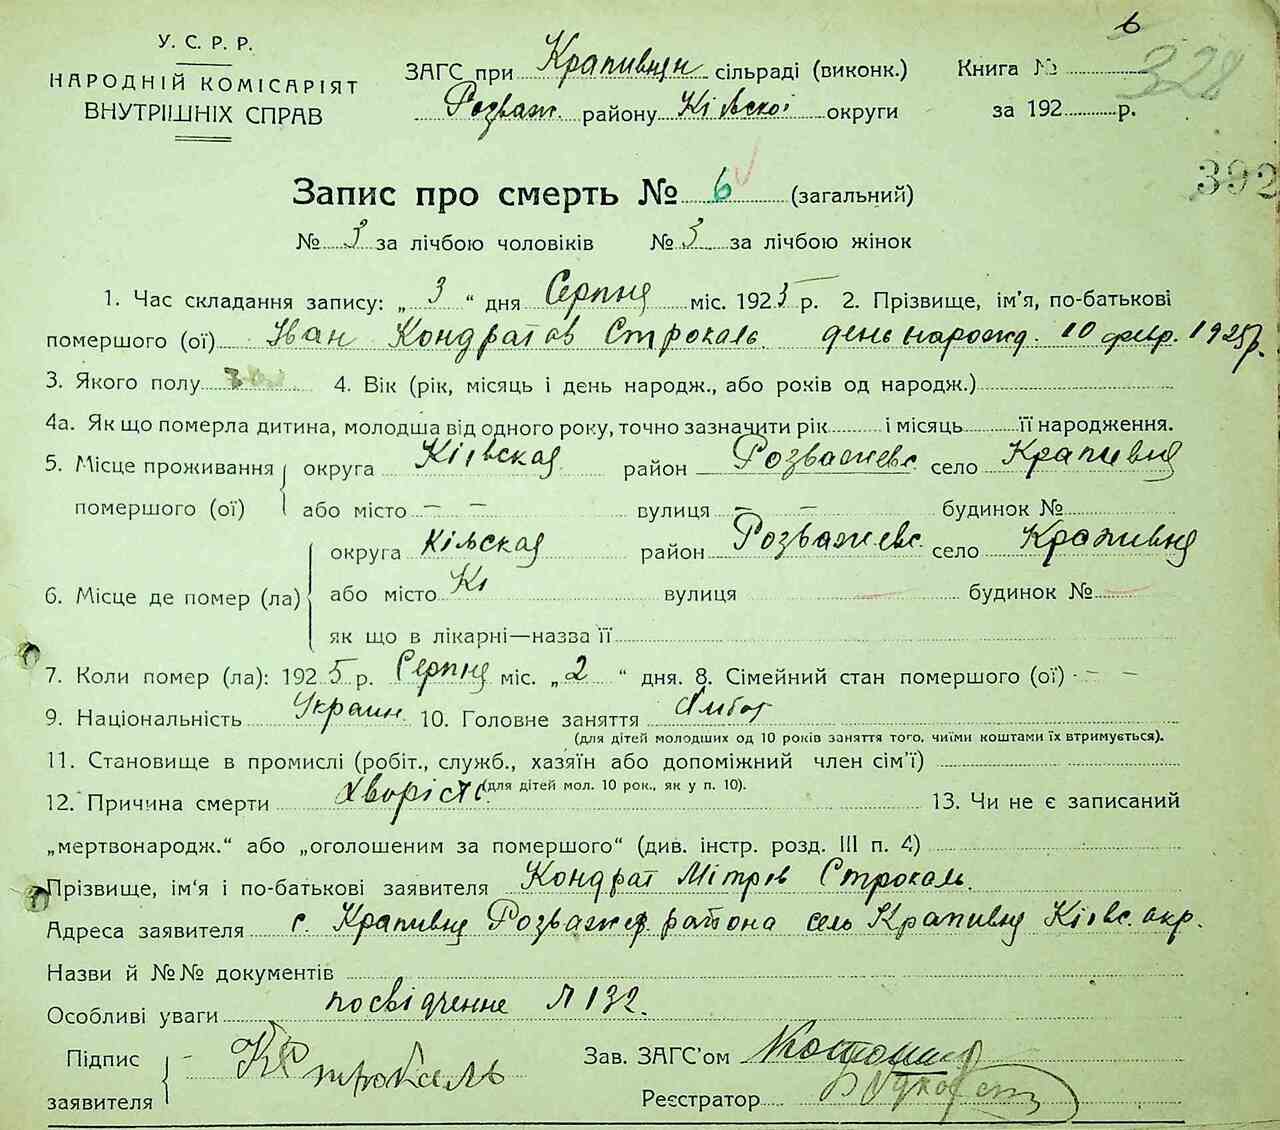 6
328
У. С. Р. Р.
НАРОДНІЙ КОМІСАРІЯТ
ВНУТРІШНІХ СПРАВ
ЗАГС при Крапивнян сільраді (виконк.)
Розваж. району Київскої округи
Книга №
за 192 р.
392
Запис про смерть № 6 (загальний)
№ 3 за лічбою чоловіків № 3 за лічбою жінок
1. Час складання запису: „ 3 “ дня Серпня міс. 1925 р. 2. Прізвище, ім'я, по-батькові
помершого (ої) Іван Кондратов Строкаль день нарожд. 10 февр. 1925 р.
3. Якого полу 4. Вік (рік, місяць і день народж., або років од народж.)
4а. Як що померла дитина, молодша від одного року, точно зазначити рік і місяць її народження.
5. Місце проживання помершого (ої) округа Кіевская район Розважевс село Крапивня
або місто – – вулиця – – будинок №
6. Місце де помер (ла) округа Кіевская район Розважевс. село Крапивня
або місто Кі вулиця будинок №
як що в лікарні—назва її
7. Коли помер (ла): 1925 р. Серпня міс. „ 2 “ дня. 8. Сімейний стан помершого (ої) – –
9. Національність Украин. 10. Головне заняття
(для дітей молодших од 10 років заняття того, чиїми коштами їх втримується).
11. Становище в промислі (робіт., служб., хазяїн або допоміжний член сім'ї)
(для дітей мол. 10 рок., як у п. 10).
12. Причина смерти 13. Чи не є записаний
„мертвонародж.“ або „оголошеним за помершого“ (див. інстр. розд. III п. 4)
Прізвище, ім'я і по-батькові заявителя Кондрат Мітров Строкаль.
Адреса заявителя с. Крапивня Розважев. района сель Крапивня Кіевс. окр.
Назви й №№ документів
Особливі уваги посвідченне № 132.
Підпис заявителя К Строкаль
Зав. ЗАГС'ом
Реєстратор